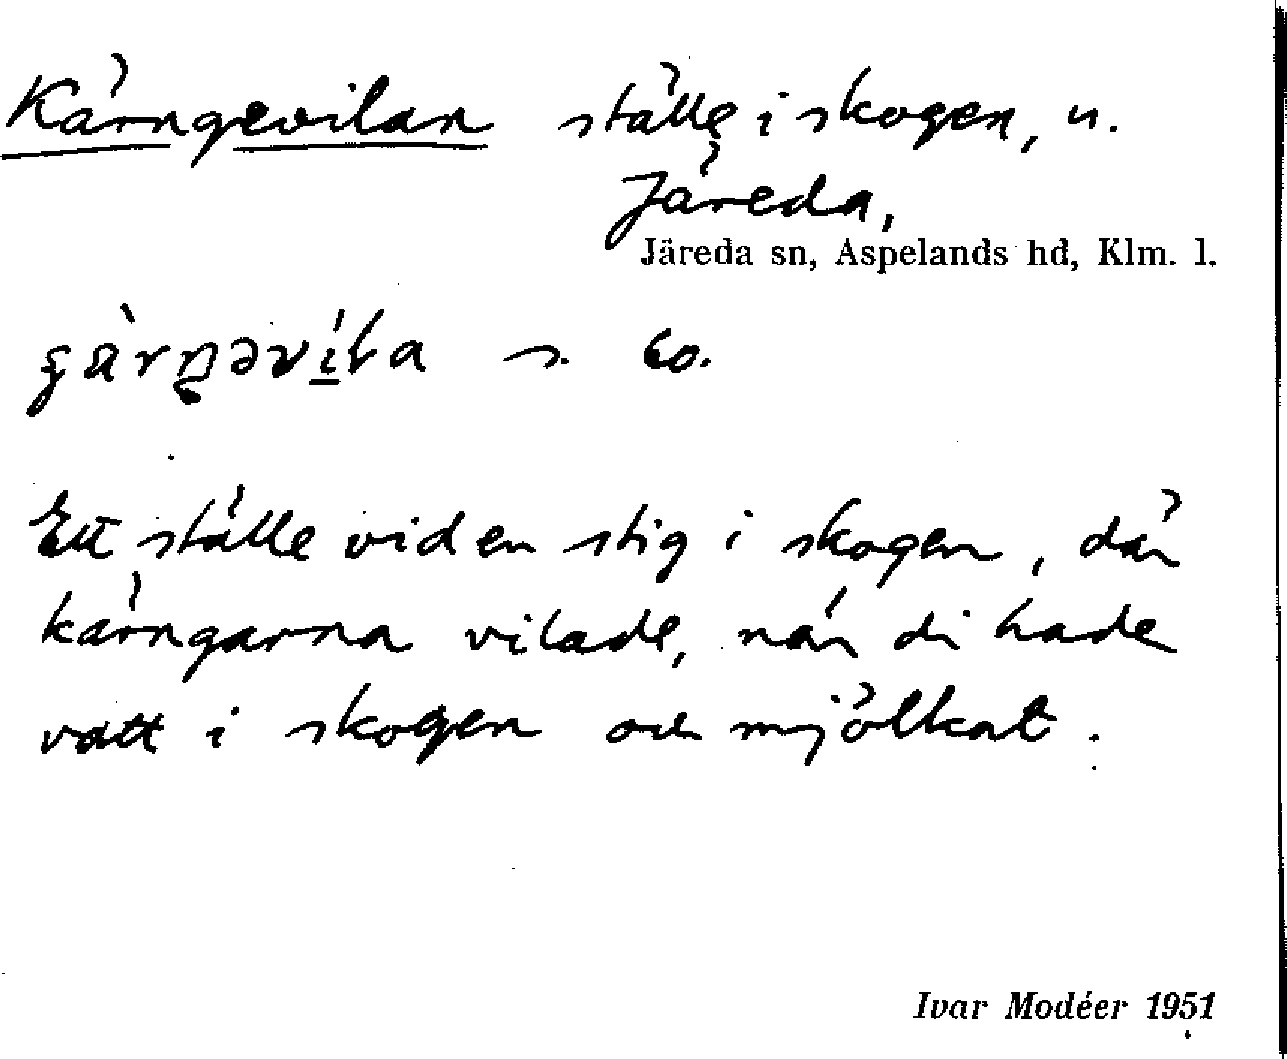 Kärngevilan ställe i skogen, u.
Järeda,
Järeda sn, Aspelands hd, Klm. l.
Ett ställe vid en stig i skogen, där
kärngarna vilade, när di hade
vatt i skogen och mjölkat.
Ivar Modéer 1951